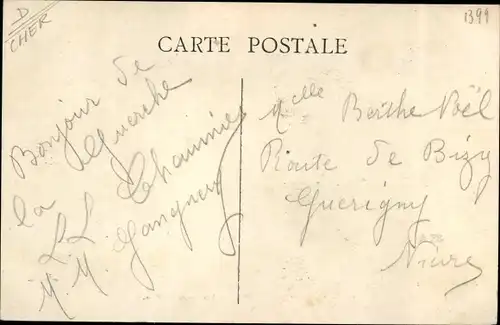 D
CHER
1399
CARTE POSTALE
Bonjour de
la Guerche
LL Chaumier
M.M. 
Melle Berthe Noël
Route de Bizy
Guerigny
Nièvre